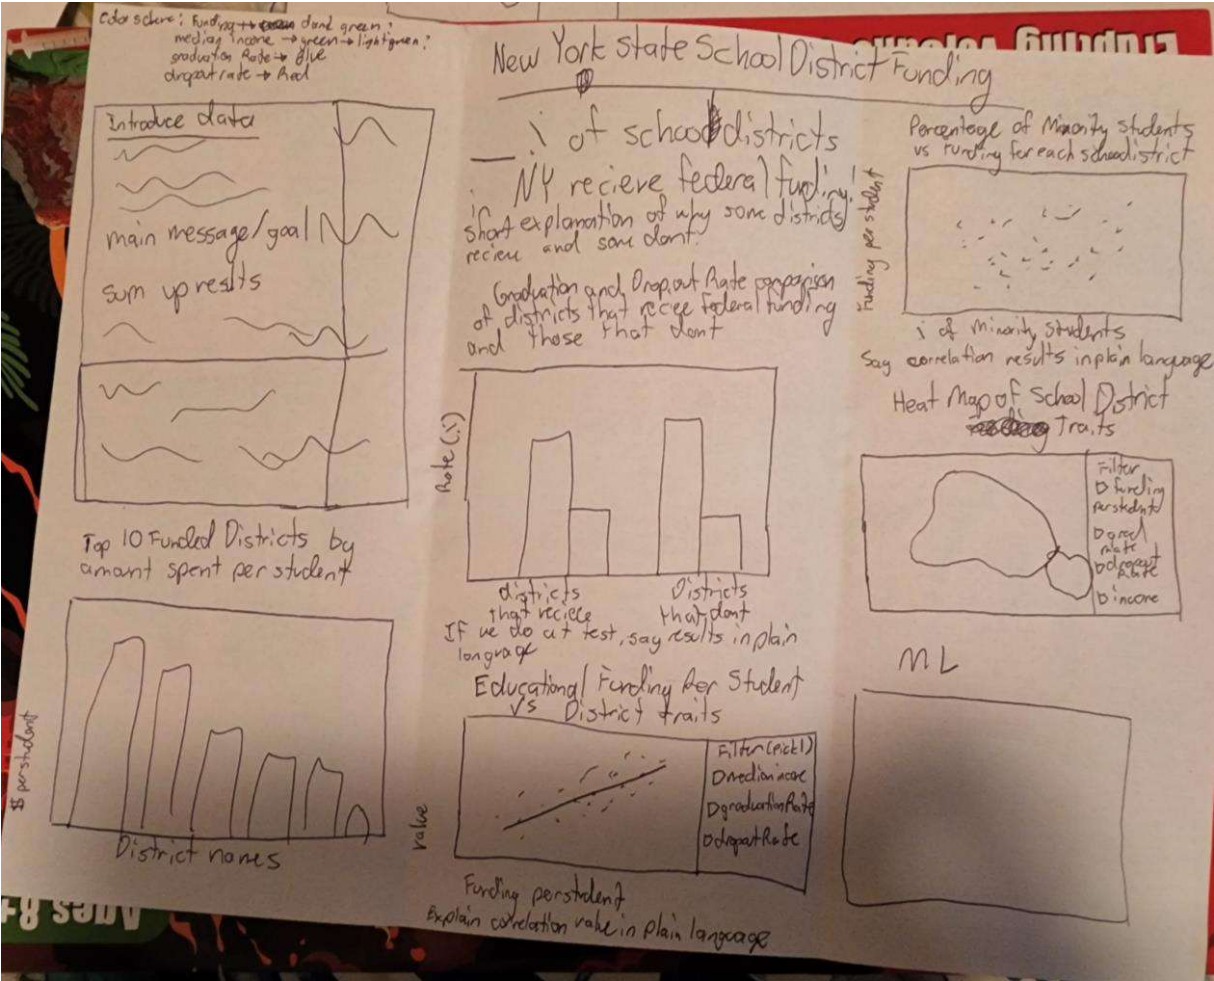 Color scheme: Funding → dark green
median income → green → light green
graduation Rate → Blue
dropout rate → Red
New York State School District Funding
Introduce data
main message/goal
sum up results
Top 10 Funded Districts by
amount spent per student
$ per student
District names
% of school districts
in NY recieve federal funding!
short explanation of why some districts
recieve and some dont.
Graduation and Dropout Rate comparison
of districts that reciee federal funding
and those that dont
Rate (%)
districts
that reciece
Districts
that dont
If we do a t test, say results in plain
language
Educational Funding Per Student
vs District traits
value
Filter (pick 1)
median income
graduation Rate
dropout Rate
Funding per student
Explain correlation value in plain language
Percentage of Minority Students
vs Funding for each school district
Funding per student
% of Minority Students
Say correlation results in plain language
Heat Map of School District
Traits
Filter
funding
per student
grad
rate
dropout
Rate
income
ML
Erupting Volcano
Ages 8+